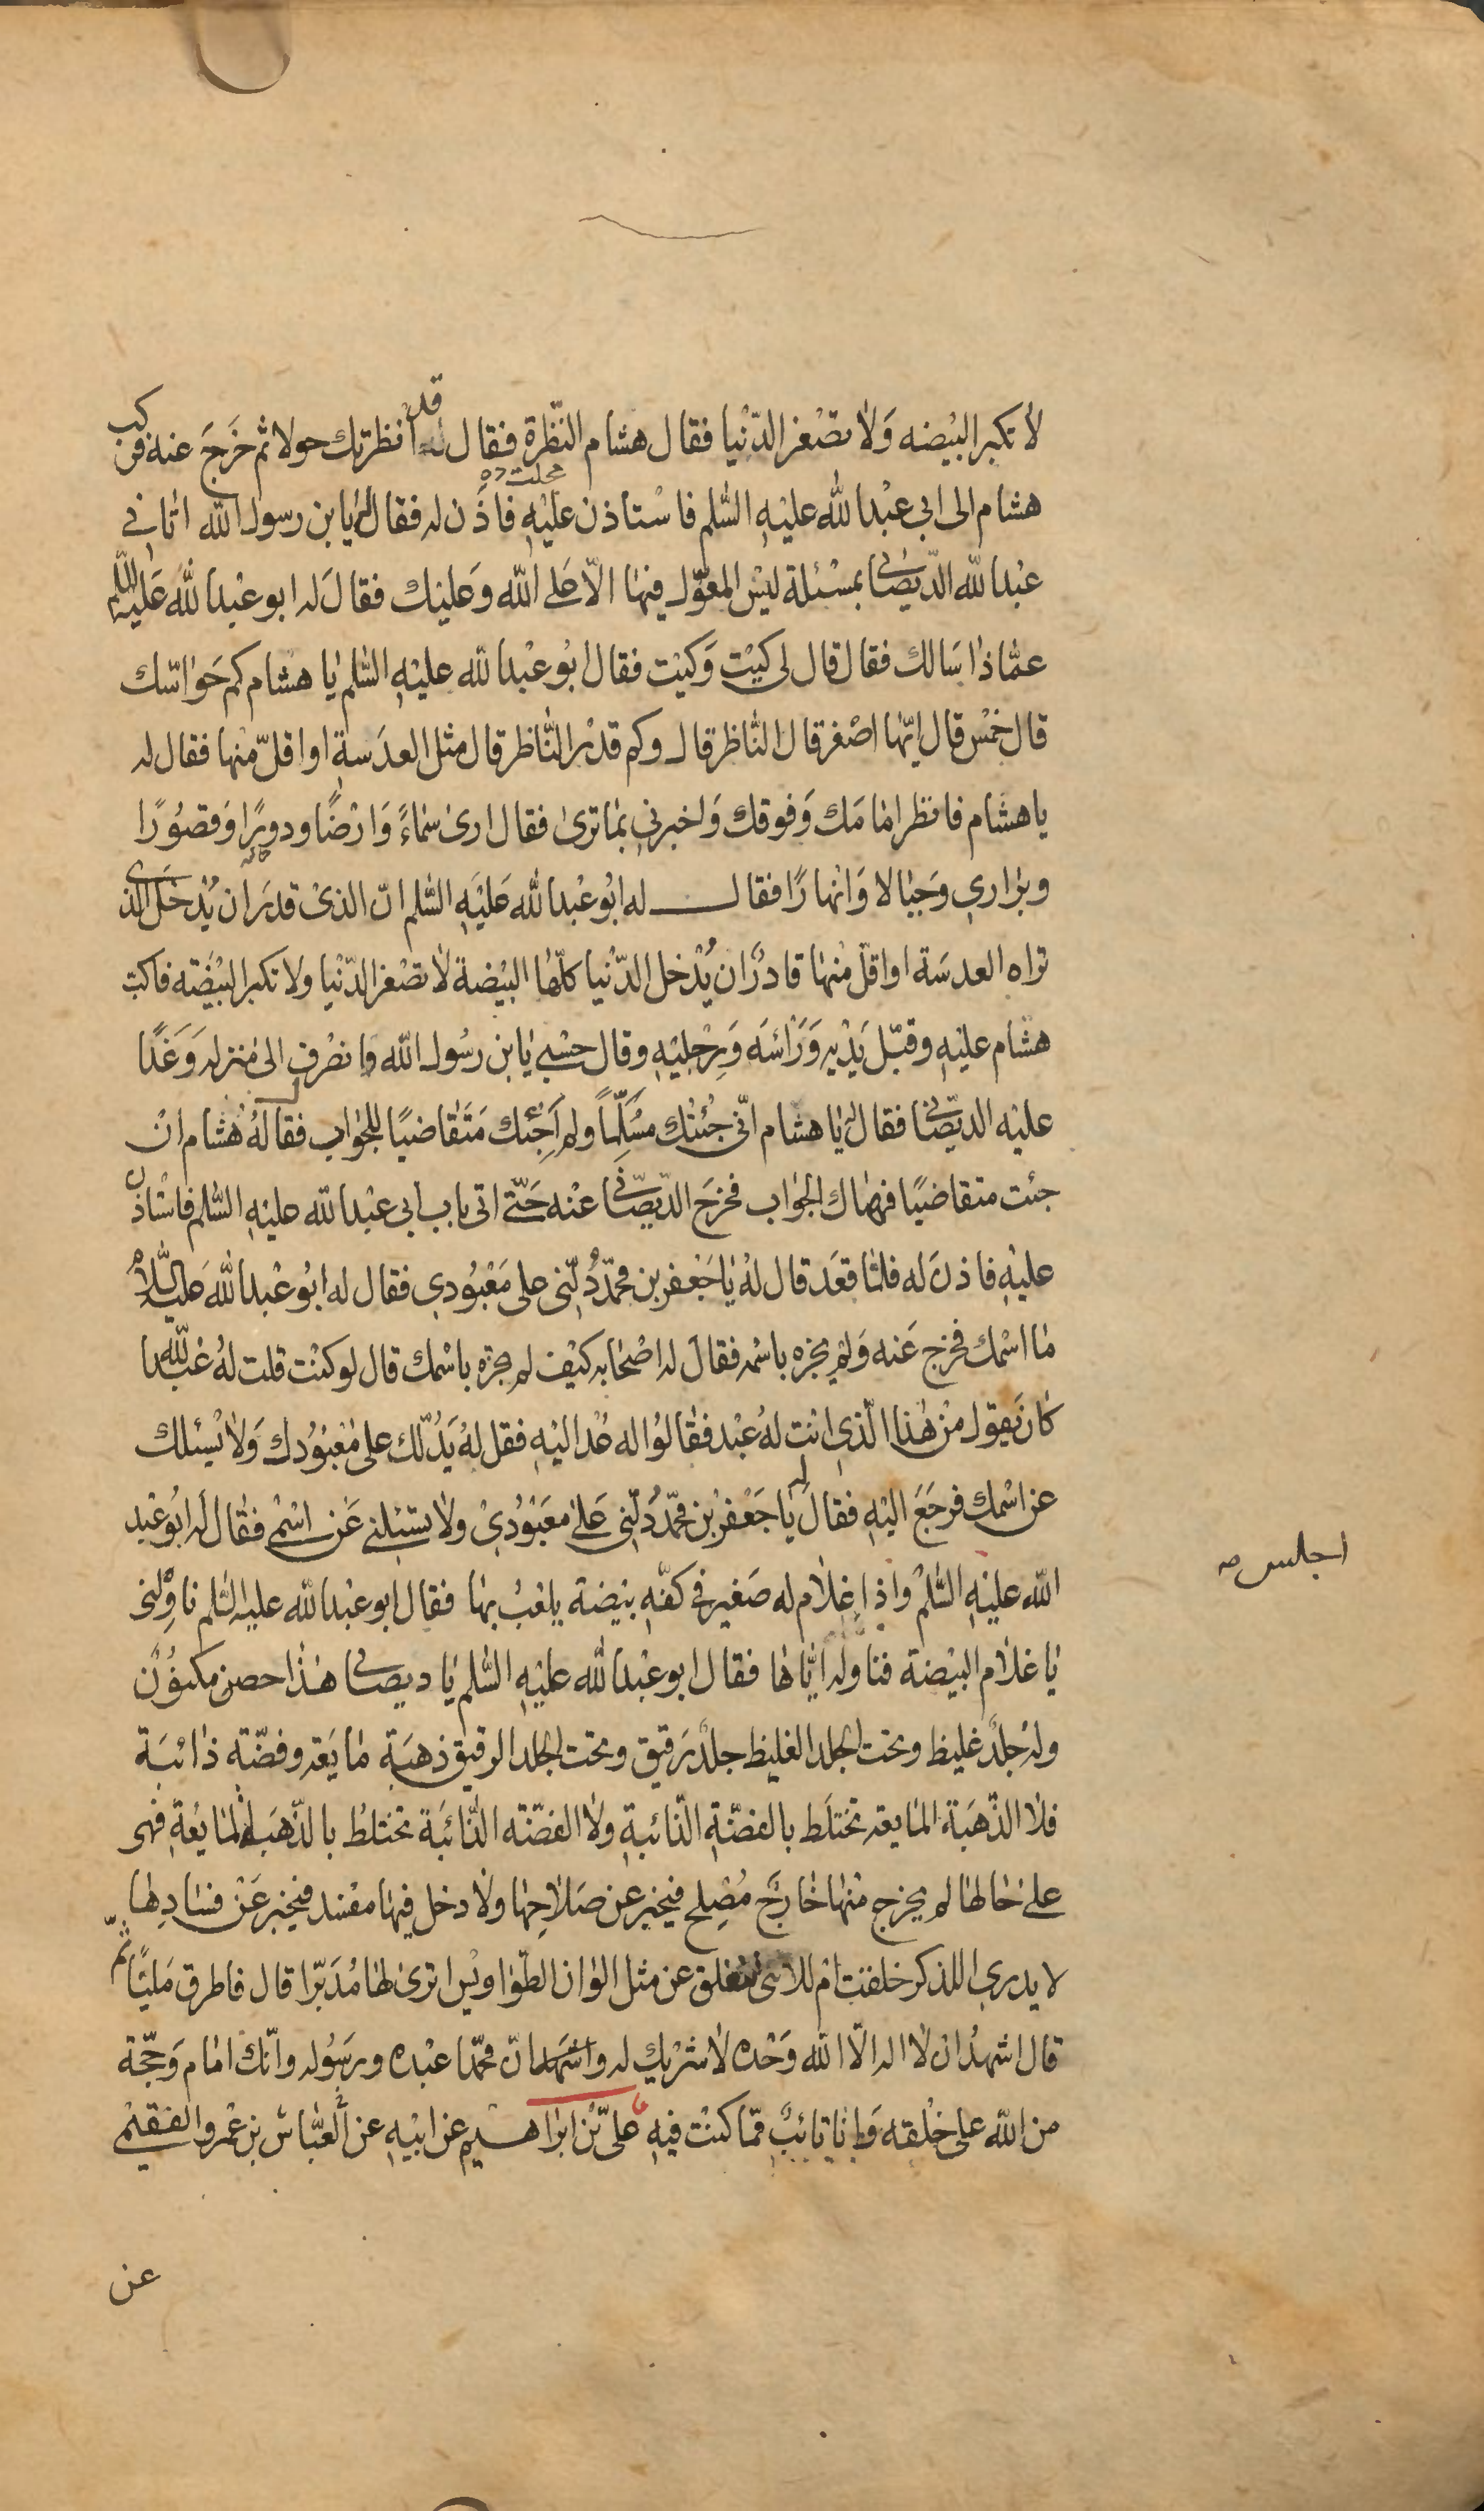 لا تكبر البيضه وَلا تصْغر الدّنْيا فقال هشام النّظرة فقال له قد انظرتك حولا ثم خَرَجَ عنه فركب
هشام الى ابى عبْد الله عليْهِ السّلم فاسْتاذن عليْهِ فاذَن له فقال له يا بن رسول الله اتانى
عبْد الله الدّيصانى بمسْئلة ليْس المعوّل فيْها الّا عَلى الله وَعليْك فقال لَه ابو عبْد الله عَليْه السّلم
عمّا ذا سَالك فقال قال لى كيْت وَكيْت فقال ابُو عبْد الله عليْهِ السّلم يا هشام كم حَواسّك
قال خمْس قال ايّها اصْغر قال النّاظر قال وكم قدْر النّاظر قال مثل العدَسة او اقلّ منها فقال له
يا هشام فانظر امامَك وَفوقك وَاخبرنى بما ترى فقال ارى سماءً وَارْضًا ودورًا وَقصُورًا
وبرارى وَجبالا وَانهارًا فقال له ابُو عبْد الله عَليْهِ السّلم انّ الذىْ قدرَ ان يُدْخَل الذى
تراه العدسَة او اقلّ منْها قادرٌ ان يُدْخل الدّنْيا كلّها البيْضة لا تصْغر الدّنْيا ولا تكبر البيْضَة فاكبّ
هشام عليْهِ وقبّل يَدْيه وَرَاْسَه وَرِجْليْهِ وقال حسْبى يا بن رسُول الله وانصْرف الى منزله وَغَدَا
عليْه الديّصانى فقال له يا هشام انّى جئتك مسَلّمًا ولم اَجئك متَقاضيًا للجَواب فقال لهُ هُشام انْ
جئت متقاضيًا فهاك الجَواب فخرَج الدّيصّانى عنْه حَتّى اتى باب ابى عبْد الله عليْهِ السّلم فاسْتاذن
عليْهِ فاذنَ له فلمّا قعَد قال لهُ يا جَعْفر بن محمّد دُلّنى على مَعْبُودى فقال له ابُو عبْد الله عَليْه السّلامُ
ما اسْمك فخرج عَنه وَلمْ يخبره باسْمه فقالَ له اصْحابه كيْف لم تخبرْه باسْمك قال لو كنْت قلت لهُ عَبْد الله
كانَ يَقول منْ هذا الّذى انْت لهُ عبْد فقالوُا له عُدْ اليْهِ فقل لهُ يَدُلّك على معْبوُدك وَلا يسْئلك
عن اسْمك فرجَعَ اليْهِ فقال له يا جَعْفر بْن محمّد دُلّنى عَلى مَعبْوُدىْ ولا تسْئلنى عَن اسْمى فقال لَه ابُو عبْد
الله عليْهِ السّلمْ واذا غلام له صَغير فى كفّه بيْضة يلعَبُ بها فقال ابو عبْد الله عليْه السّلم ناوِلْنى
يا غلام البيْضة فناوله ايّاها فقال ابو عبْد الله عليْهِ السّلم يا ديصانى هذا حصن مكنوُنٌ
ولهُ جلدٌ غليظ وتحت الجلد الغليظ جلدٌ رَقيق وتحت الجلد الرقيق ذهبَة مايَعه وفضّة ذائبَة
فلا الذّهَبَة المايعه تخْتلَط بالفضّةِ الذّائبةِ ولا الفضّة الذّائبَة تختلطُ بالذّهبَة المايعُة فهى
على حالها لم يخرج منْها خارجٌ مُصْلح فيخبر عن صَلاحِها ولا دخل فيها مفْسد فيخبر عَنْ فسادِها
لا يدرى اللذكر خلقت ام للانثى تنفلق عن مثل الوان الطّواويْس اترى لها مُدبّرًا قال فاطرق مَليًّا ثمّ
قال اشهدُ ان لا اله الّا الله وَحْده لا شريْك له واشهد انّ محمّدا عبْده ورسُوله وانّك امام وَحجّة
من الله على خلْقه وَانا تائبٌ ممّا كنْت فيْهِ علىّ بْن ابراهيم عن ابيْهِ عن العَبّاس بن عمْرو الفقيْمى
عن
اجلس صه